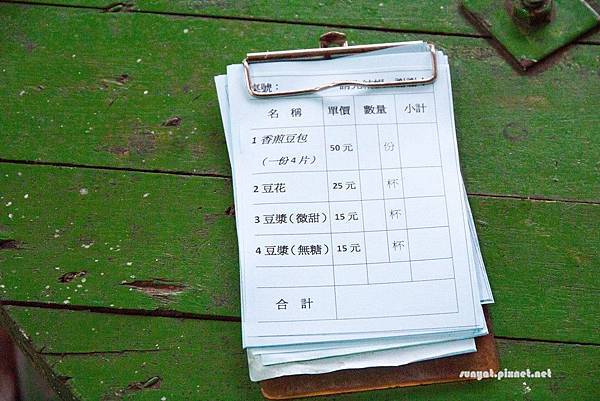 桌號：
名 稱 單價 數量 小計
1 香煎豆包 50 元 份
（一份 4 片）
2 豆花 25 元 杯
3 豆漿（微甜） 15 元 杯
4 豆漿（無糖） 15 元 杯
合 計
sunyat.pixnet.net